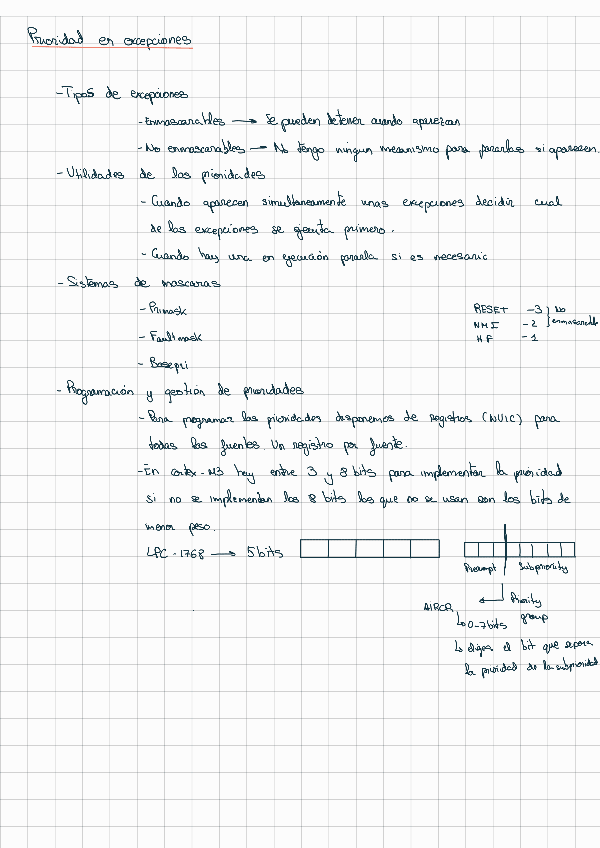 Prioridad en excepciones
- Tipos de excepciones
- Enmascarables → Se pueden detener cuando aparezcan
- No enmascarables → No tengo ningun mecanismo para pararlas si aparecen.
- Utilidades de las prioridades
- Cuando aparecen simultaneamente unas excepciones decidir cual
de las excepciones se ejecuta primero.
- Cuando hay una en ejecución pararla si es necesario
- Sistemas de mascaras
- Primask
- Faultmask
- Basepri
RESET -3
NMI -2
HF -1
No
enmascarable
- Programación y gestión de prioridades
- Para programar las prioridades disponemos de registros (NVIC) para
todas las fuentes. Un registro por fuente.
- En cortex-M3 hay entre 3 y 8 bits para implementar la prioridad
si no se implementan los 8 bits los que no se usan son los bits de
menor peso.
LPC-1768 → 5 bits
Preempt Subpriority
Priority
group
AIRCR
↳ 0-7 bits
↳ eliges el bit que separa
la prioridad de la subprioridad